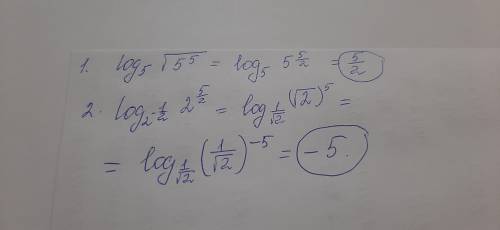 1. log₅ √5⁵ = log₅ 5^(5/2) = 5/2
2. log_(2^(-1/2)) 2^(5/2) = log_(1/√2) (√2)⁵ =
= log_(1/√2) (1/√2)^(-5) = -5.